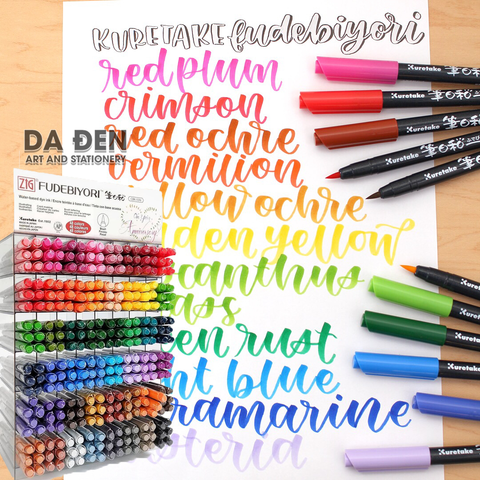 KURETAKE fudebiyori
red plum
crimson
red ochre
vermilion
llow ochre
lden yellow
canthus
en rust
nt blue
ramarine
steria
DA DEN
ART AND STATIONERY
ZIG FUDEBIYORI 筆日和
Kuretake 筆日和
Kuretake 筆日和
Kuretake 筆日和
Kuretake 筆日和
Kuretake 筆日和
Kuretake
Kuretake
Kuretake
Kuretake
Kuretake
Kuretake